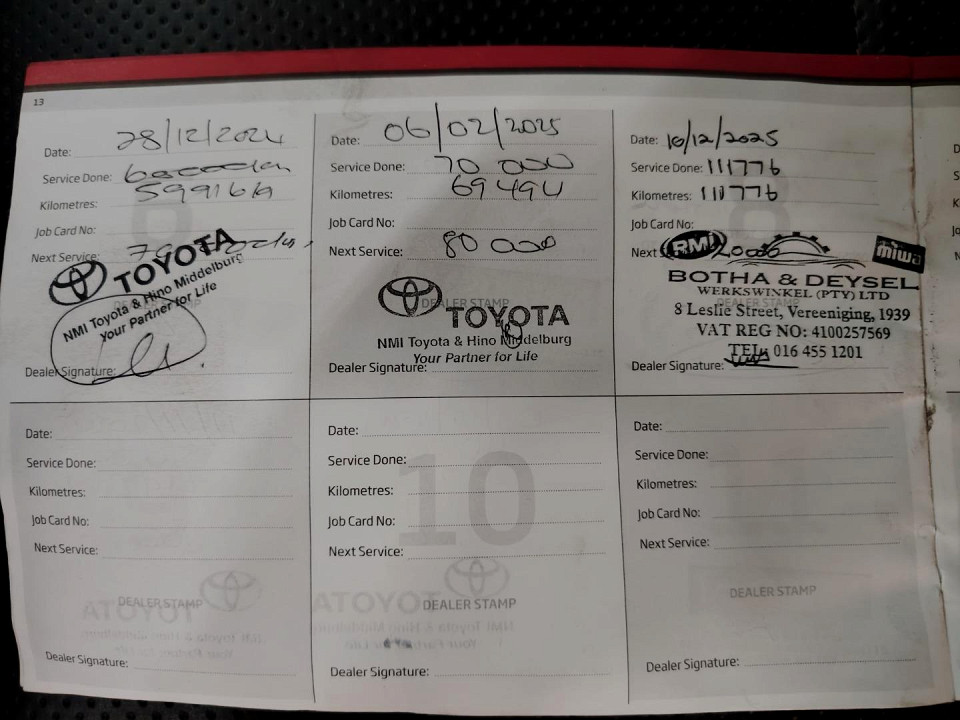 13
Date: 28/12/2024
Service Done: 60000km
Kilometres: 59916km
Job Card No:
Next Service:
TOYOTA
NMI Toyota & Hino Middelburg
your Partner for Life
DEALER STAMP
Dealer Signature:
Date: 06/02/2025
Service Done: 70 000
Kilometres: 69494
Job Card No:
Next Service: 80 000
DEALER STAMP
TOYOTA
NMI Toyota & Hino Middelburg
Your Partner for Life
Dealer Signature:
Date: 10/12/2025
Service Done: 111776
Kilometres: 111776
Job Card No:
Next
RMI
miwa
BOTHA & DEYSEL
WERKSWINKEL (PTY) LTD
DEALER STAMP
8 Leslie Street, Vereeniging, 1939
VAT REG NO: 4100257569
TEL: 016 455 1201
Dealer Signature:
Date:
Service Done:
Kilometres:
Job Card No:
Next Service:
DEALER STAMP
Dealer Signature:
Date:
Service Done:
10
Kilometres:
Job Card No:
Next Service:
DEALER STAMP
Dealer Signature:
Date:
Service Done:
Kilometres:
Job Card No:
Next Service:
DEALER STAMP
Dealer Signature: